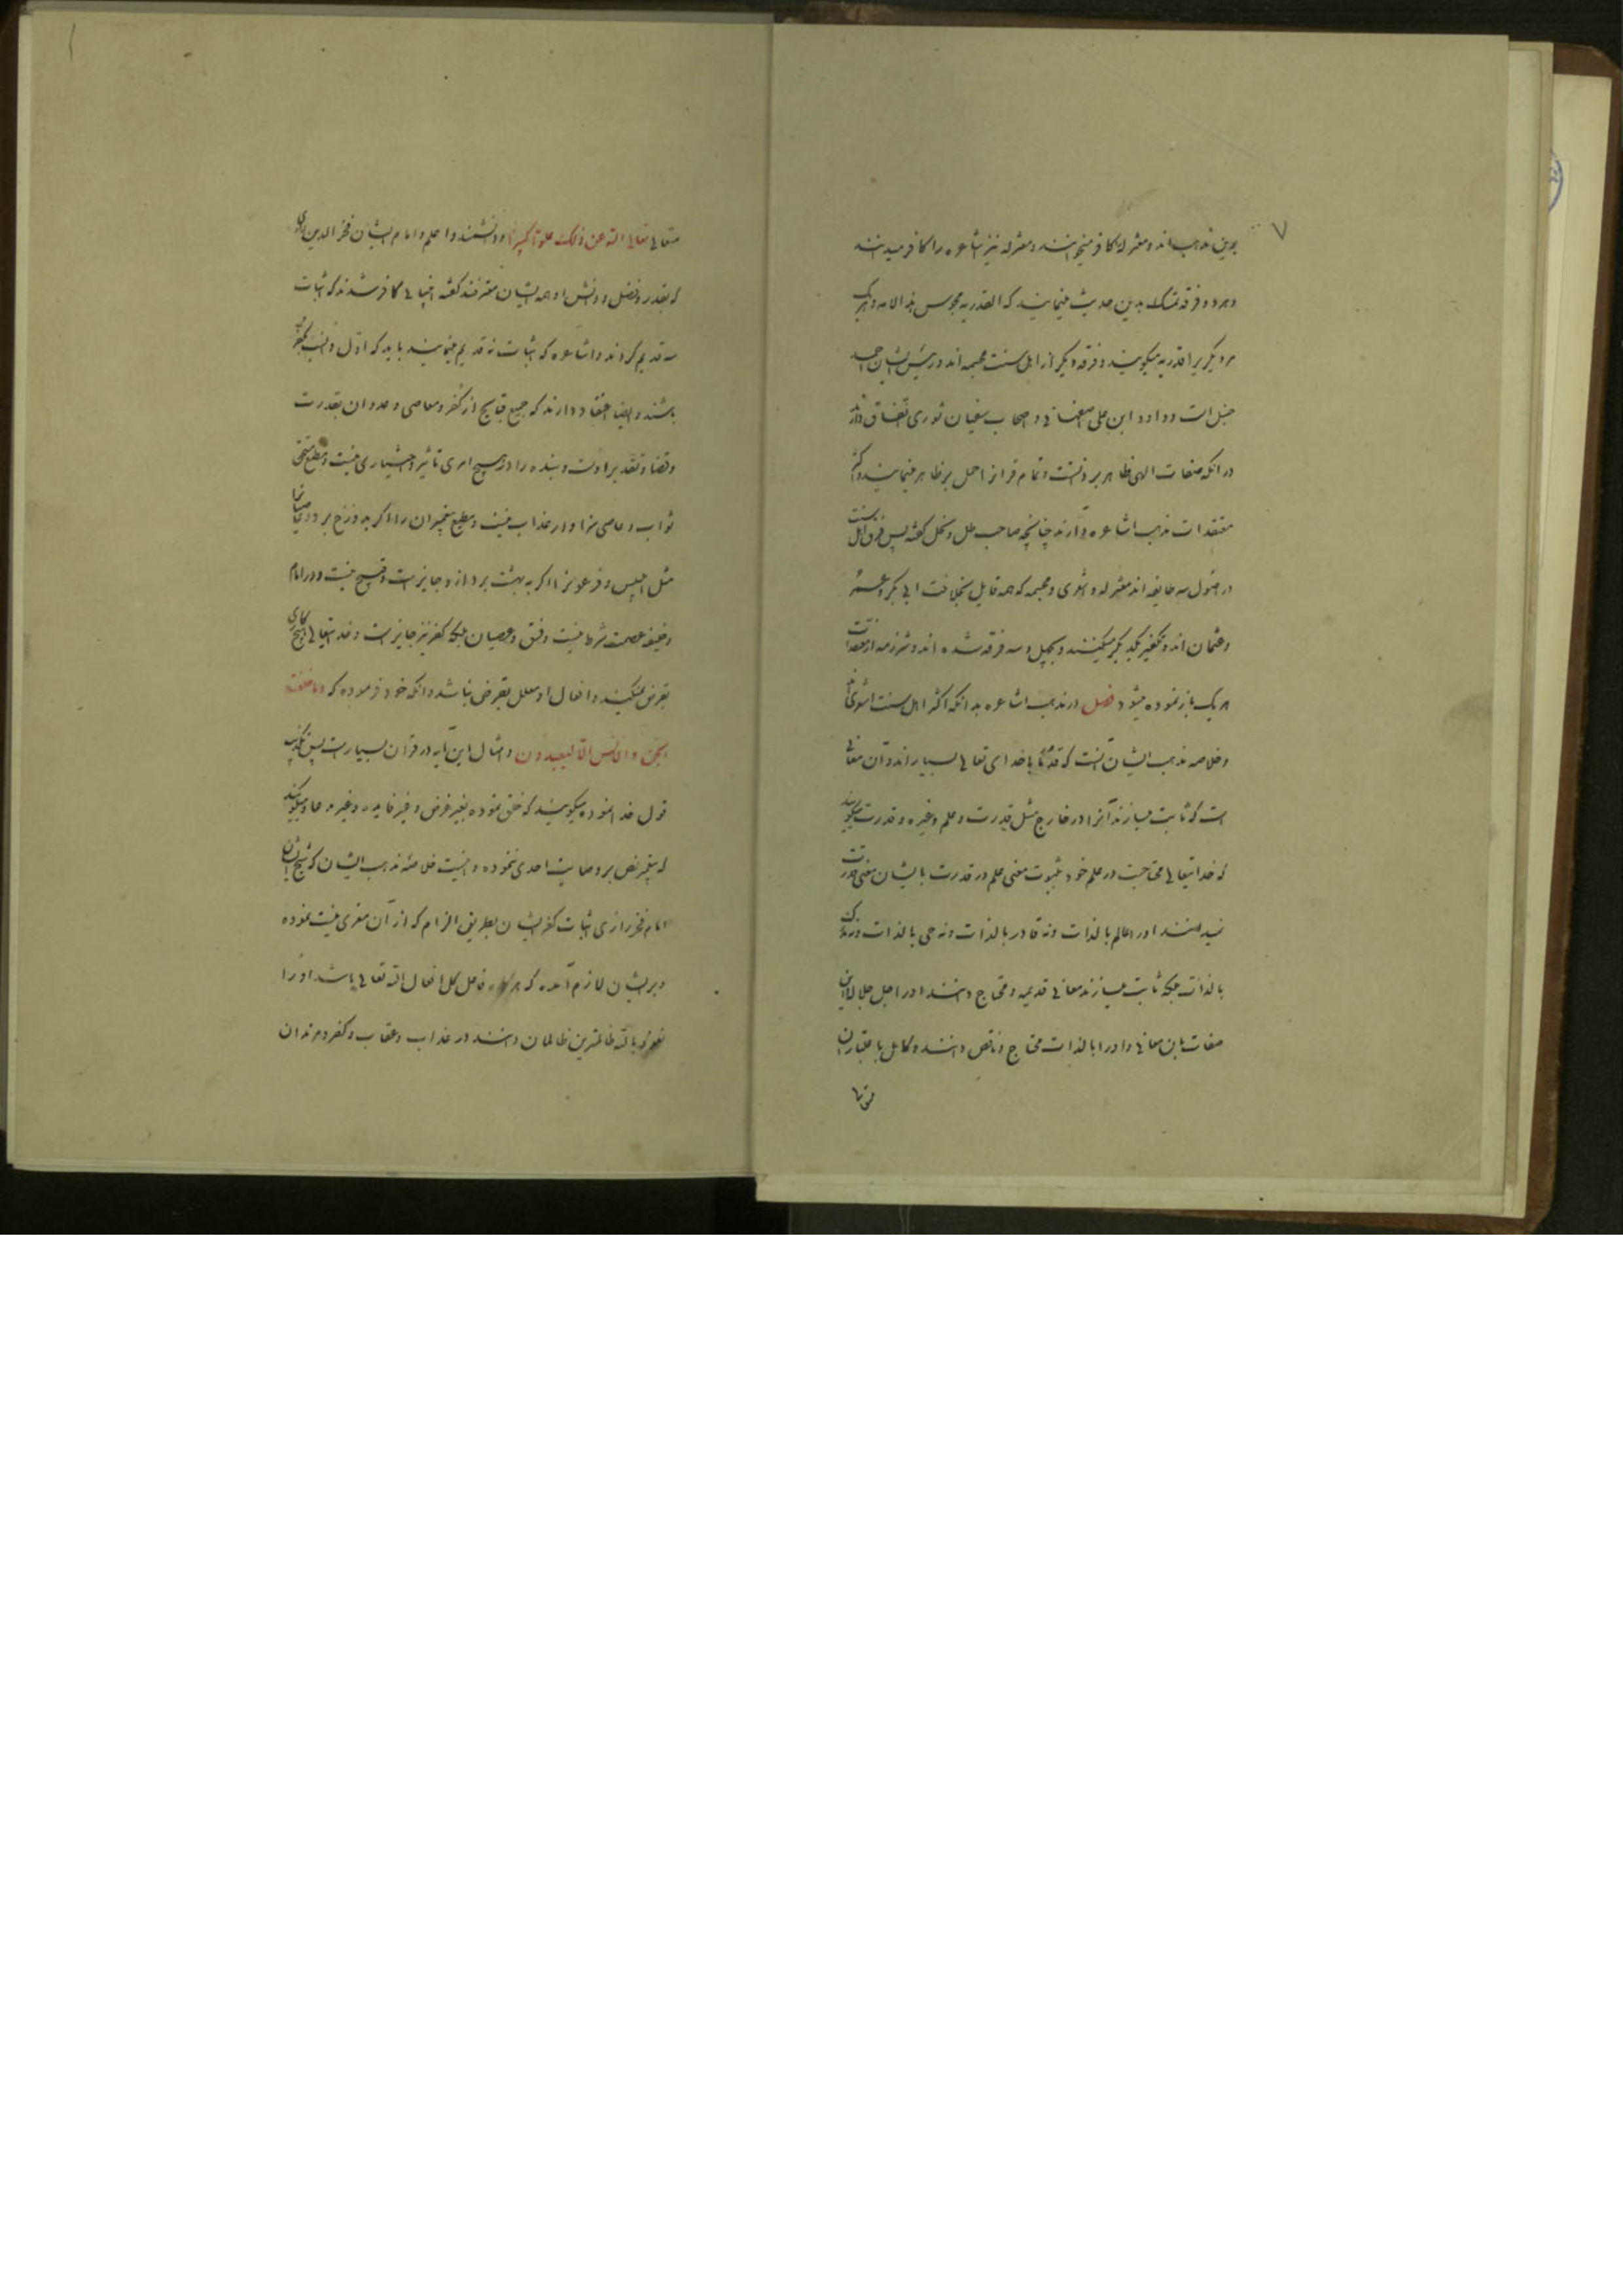 ۷
برین مذهب‌اند و معتزله را کافر میخوانند و معتزله نیز اشاعره را کافر میدانند
و هر دو فرقه تمسک بدین حدیث مینمایند که القدریه مجوس هذه الامه و هر یک
مر دیگریرا قدریه میگویند و فرقه دیگر از اهل سنت مجسمه اند و رئیس ایشان احمد
حنبل است و داود ابن علی اصفهانی و اصحاب سفیان ثوری اتفاق دارند
در آنکه صفات الهی ظاهر بر ذاتست و تمام قرآنرا حمل بر ظاهر مینمایند و اکثر
معتقدات مذهب اشاعره دارند چنانچه صاحب ملل و نحل گفته پس فرق اهل سنت
در اصول سه طایفه اند معتزله و اشعری و مجسمه که همه قایل بخلافت ابی بکر و عمر
و عثمان اند و تکفیر یکدیگر میکنند و بچهل و سه فرقه شده اند و شرذمه از معتقدات
هر یک باز نموده میشود فصل در مذهب اشاعره بدانکه اکثر اهل سنت اشعری اند
و خلاصه مذهب ایشان آنست که قدما با خدای تعالی بسیار اند و آن معانی
است که ثابت میسازند آنرا در خارج مثل قدرت و علم و غیره و قدرت میگویند
که خدایتعالی محتاجست در علم خود بثبوت معنی علم و در قدرت بایشان معنی قدرت
نمیدانند اورا عالم بالذات و نه قادر بالذات و نه حی بالذات و نه مدرک
بالذات بلکه ثابت میسازند معانی قدیمه و محتاج دانند اورا جل جلاله در این
صفات بان معانی و اورا بالذات محتاج و ناقص دانند و کامل باعتبار آن
متعالی تعالی الله عن ذلک علوا کبیرا و دانشمند و اعلم و امام ایشان فخر الدین رازی
که بقدر و فضل و دانش او همه ایشان معترفند گفته نصاری کافر شدند که اثبات
سه قدیم کردند و اشاعره که اثبات نه قدیم مینمایند باید که اول و انسب بکفر
باشند و ایضا اعتقاد دارند که جمیع قبایح از کفر و معاصی و عدوان بقدرت
و قضا و تقدیر اوست و بنده را در هیچ امری تاثیر و اختیاری نیست و مطیع مستحق
ثواب و عاصی سزاوار عذاب نیست و مطیع پیغمبران را اگر بدوزخ برد و عاصیان
مثل ابلیس و فرعونرا اگر به بهشت برد از او جایز است و قبیح نیست و در امام
و خلیفه عصمت شرط نیست و فسق و عصیان بلکه کفر نیز جایز است و خدایتعالی هیچ کاری
بغرض نمیکند و افعال او معلل بغرض نباشد و آنکه خود فرموده که وما خلقت
الجن والانس الا لیعبدون و امثال این آیه در قرآن بسیار است پس تکذیب
قول خدا نموده میگویند که خلق نموده بغیر غرض و غیر فایده و غیر مدعا و میگویند
که پیغمبر نص بر وصایت احدی ننموده و اینست خلاصه مذهب ایشان که شیخ ایشان
امام فخر رازی اثبات کفر ایشان بطریق الزام که از آن مفری نیست نموده
و بر ایشان لازم آمده که فاعل کل افعال الله تعالی باشد او را
نعوذ بالله ظالمترین ظالمان دانند در عذاب و عقاب و کفر و مرتدان